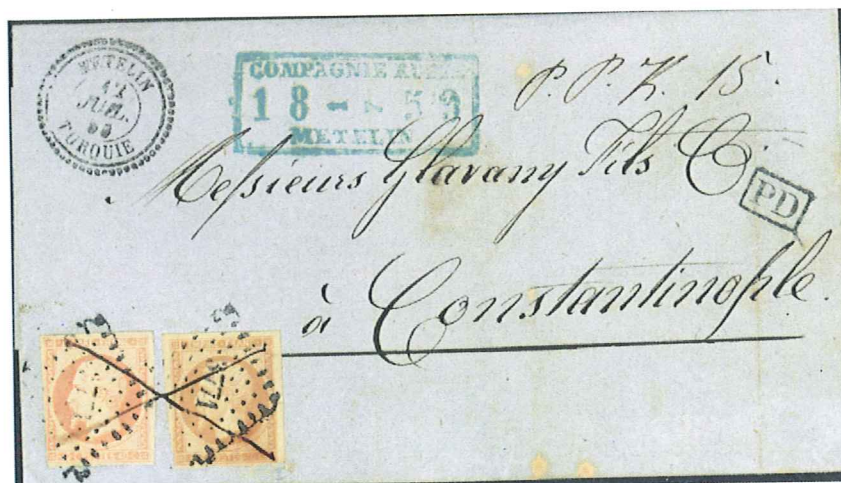 METELIN
JUIL.
TURQUIE
COMPAGNIE
18 - 1 - 59
METELIN
P. P. K. 15.
Messieurs Glavany Fils & C.
PD
à Constantinople.